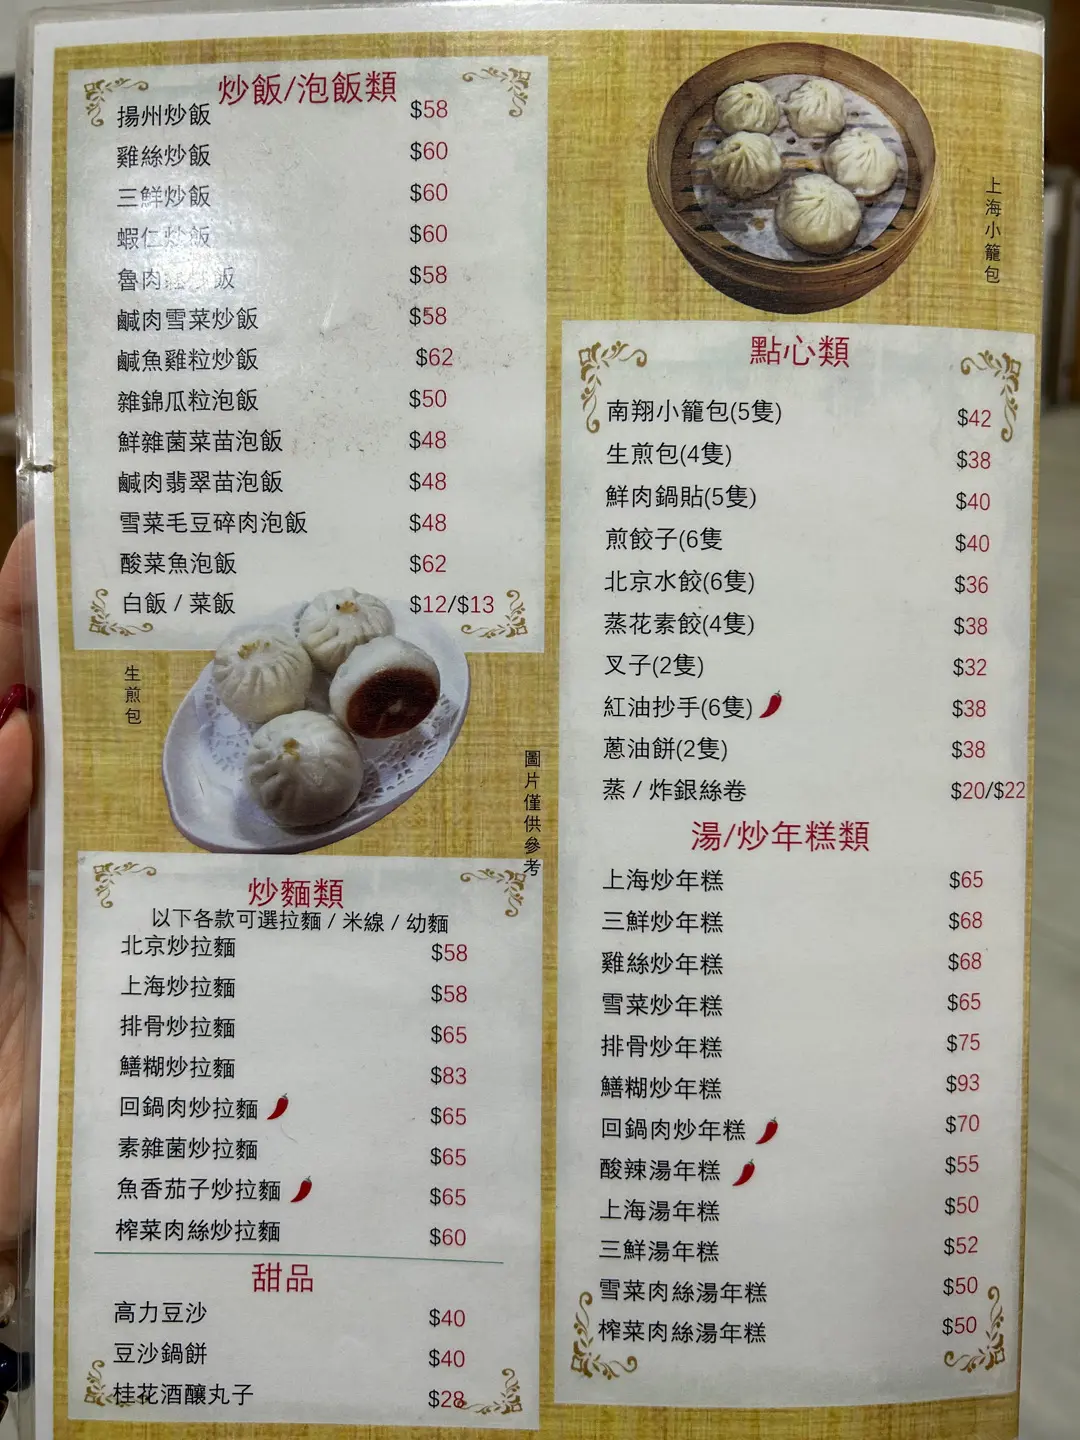 炒飯/泡飯類
揚州炒飯 $58
雞絲炒飯 $60
三鮮炒飯 $60
蝦仁炒飯 $60
魯肉 炒飯 $58
鹹肉雪菜炒飯 $58
鹹魚雞粒炒飯 $62
雜錦瓜粒泡飯 $50
鮮雜菌菜苗泡飯 $48
鹹肉翡翠苗泡飯 $48
雪菜毛豆碎肉泡飯 $48
酸菜魚泡飯 $62
白飯 / 菜飯 $12/$13
生煎包
圖片僅供參考
炒麵類
以下各款可選拉麵 / 米線 / 幼麵
北京炒拉麵 $58
上海炒拉麵 $58
排骨炒拉麵 $65
鱔糊炒拉麵 $83
回鍋肉炒拉麵 $65
素雜菌炒拉麵 $65
魚香茄子炒拉麵 $65
榨菜肉絲炒拉麵 $60
甜品
高力豆沙 $40
豆沙鍋餅 $40
桂花酒釀丸子 $28
上海小籠包
點心類
南翔小籠包(5隻) $42
生煎包(4隻) $38
鮮肉鍋貼(5隻) $40
煎餃子(6隻 $40
北京水餃(6隻) $36
蒸花素餃(4隻) $38
叉子(2隻) $32
紅油抄手(6隻) $38
蔥油餅(2隻) $38
蒸 / 炸銀絲卷 $20/$22
湯/炒年糕類
上海炒年糕 $65
三鮮炒年糕 $68
雞絲炒年糕 $68
雪菜炒年糕 $65
排骨炒年糕 $75
鱔糊炒年糕 $93
回鍋肉炒年糕 $70
酸辣湯年糕 $55
上海湯年糕 $50
三鮮湯年糕 $52
雪菜肉絲湯年糕 $50
榨菜肉絲湯年糕 $50